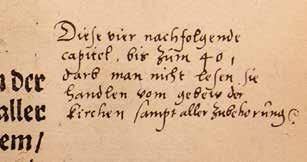 Diese vier nachfolgende
capitel, bis zum 40,
darb man nicht lesen. sie
handlen vom gebew der
kirchen sampt aller zubehorung.
n der
aller
em/